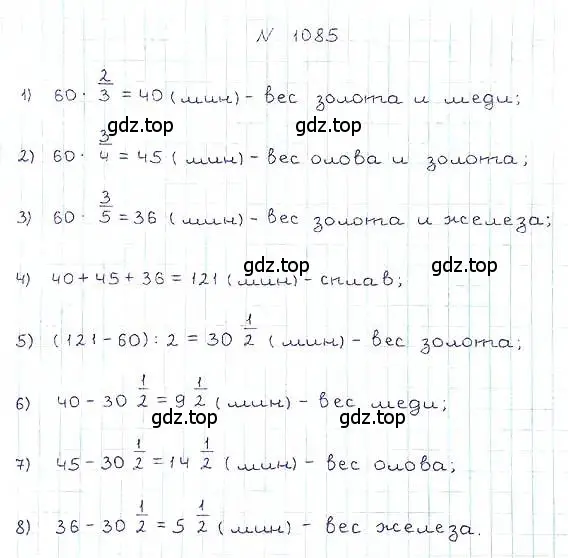 N 1085
1) 60 · 2/3 = 40 (мин) - вес золота и меди;
gdz.top
gdz.top
2) 60 · 3/4 = 45 (мин) - вес олова и золота;
3) 60 · 3/5 = 36 (мин) - вес золота и железа;
gdz.top
gdz.top
4) 40 + 45 + 36 = 121 (мин) - сплав;
5) (121 - 60) : 2 = 30 1/2 (мин) - вес золота;
gdz.top
gdz.top
6) 40 - 30 1/2 = 9 1/2 (мин) - вес меди;
gdz.top
gdz.top
7) 45 - 30 1/2 = 14 1/2 (мин) - вес олова;
8) 36 - 30 1/2 = 5 1/2 (мин) - вес железа.
gdz.top
gdz.top